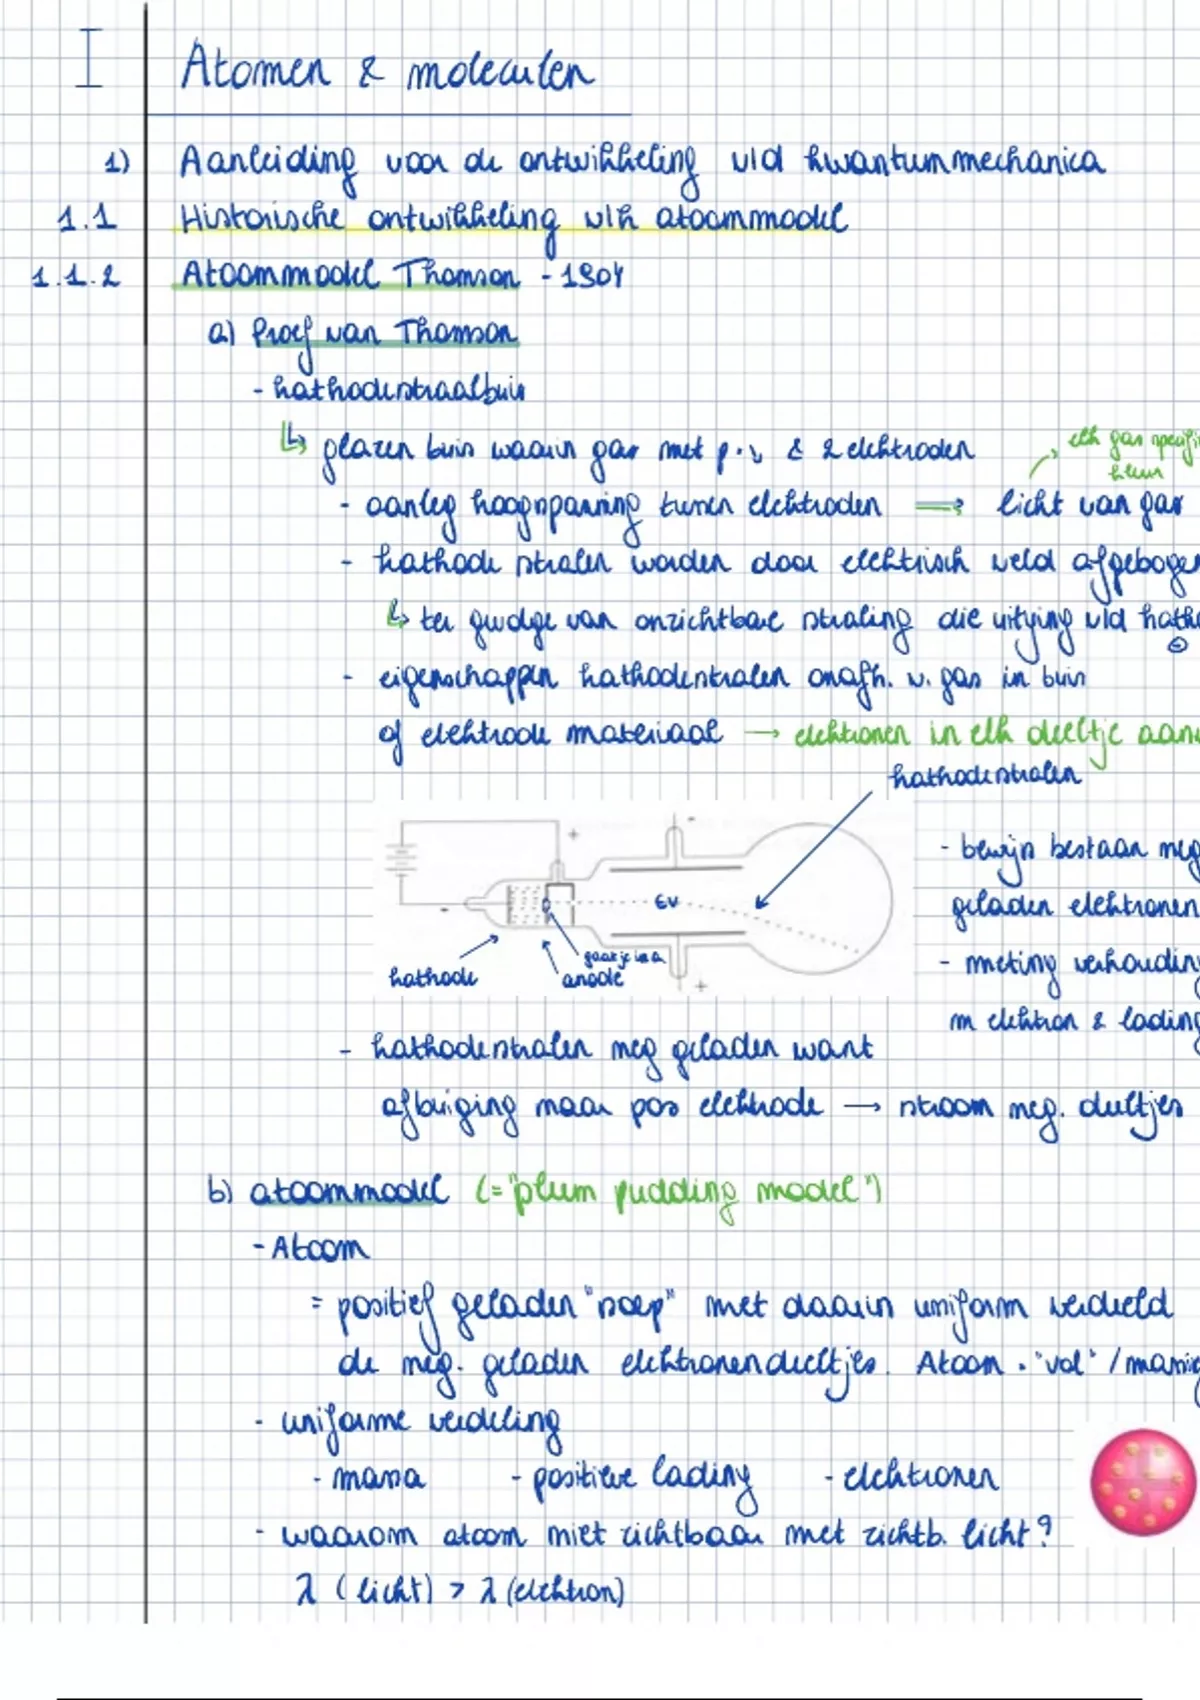 I Atomen & moleculen
1) Aanleiding voor de ontwikkeling v/d kwantummechanica
1.1 Historische ontwikkeling v/h atoommodel
1.1.2 Atoommodel Thomson - 1904
a) Proef van Thomson
- kathodestraalbuis
↳ glazen buis waarin gas met p ↘ & 2 elektroden
elk gas specifi
kleur
- aanleg hoogspanning tussen elektroden ⇒ licht van gas
- kathode stralen worden door elektrisch veld afgebogen
↳ ten gevolge van onzichtbare straling die uitging v/d katho
⊖
- eigenschappen kathodestralen onafh. v. gas in buis
of elektrode materiaal → elektronen in elk deeltje aanw
kathodestralen
+ -
- EV
gaatje in a
kathode anode +
- bewijs bestaan neg
geladen elektronen
- meting verhouding
m elektron & lading
- kathodestralen neg geladen want
afbuiging naar pos elektrode → stroom neg. deeltjes
b) atoommodel (= "plum pudding model")
- Atoom
= positief geladen "soep" met daarin uniform verdeeld
de neg. geladen elektronendeeltjes. Atoom = "vol" / massie
- uniforme verdeling
- massa - positieve lading - elektronen
- waarom atoom niet zichtbaar met zichtb. licht?
λ (licht) > λ (elektron)